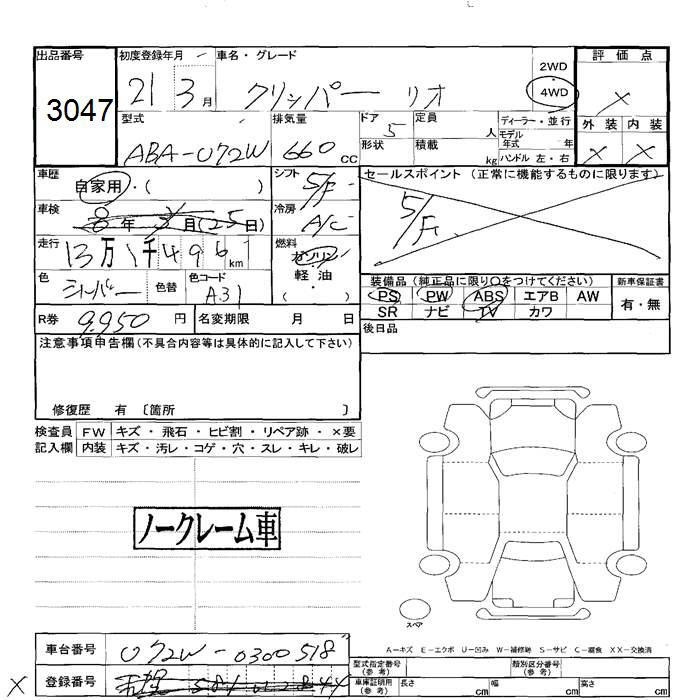 出品番号 初度登録年月 車名・グレード 2WD 評価点
3047 21 3月 クリッパー リオ 4WD ×
型式 排気量 ドア 5 定員 人 ディーラー・並行 外装 内装
ABA-U72W 660 CC 形状 積載 kg モデル年式 年 × ×
ハンドル 左・右
車歴 自家用・( ) シフト 5/F セールスポイント (正常に機能するものに限ります)
車検 8年 3月(25日) 冷房 A/C 5/F
走行 13万1千496km 燃料 ガソリン
軽油
( )
色 シルバー 色替 色コード A31
装備品 (純正品に限り○をつけてください) 新車保証書
PS PW ABS エアB AW 有・無
SR ナビ TV カワ
R券 9,950 円 名変期限 月 日 後日品
注意事項申告欄(不具合内容等は具体的に記入して下さい)
修復歴 有 〔箇所 〕
検査員 FW キズ・飛石・ヒビ割・リペア跡・×要
記入欄 内装 キズ・汚レ・コゲ・穴・スレ・キレ・破レ
ノークレーム車
スペア
A-キズ E-エクボ U-凹み W-補修跡 S-サビ C-腐食 XX-交換済
車台番号 U72W-0300518
型式指定番号(参考) 類別区分番号(参考)
× 登録番号
車庫証明用(参考) 長さ cm 幅 cm 高さ cm